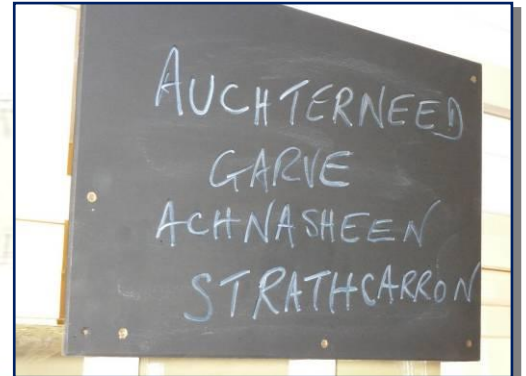 AUCHTERNEED
GARVE
ACHNASHEEN
STRATHCARRON